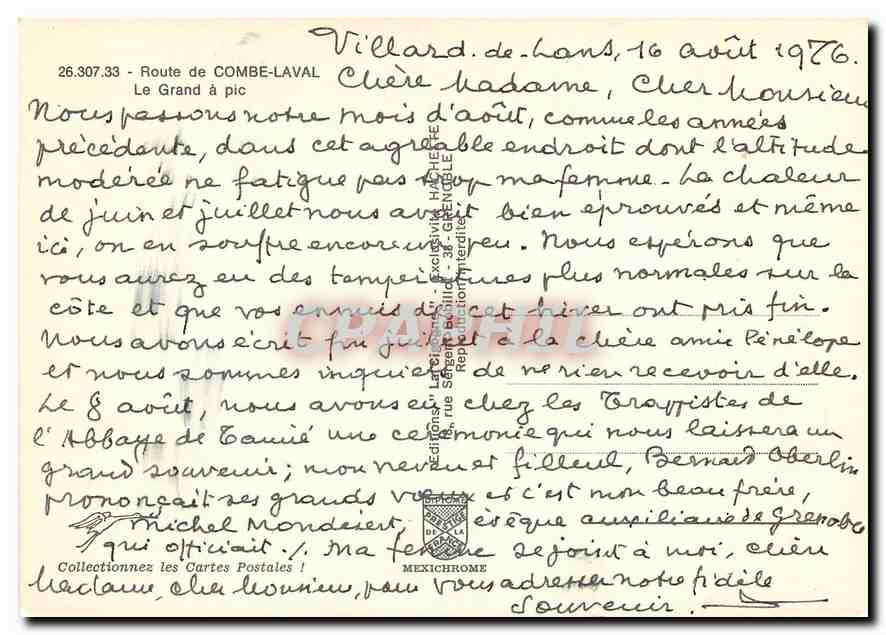 Villard-de-Lans, 16 août 1976.
26.307.33 - Route de COMBE-LAVAL
Le Grand à pic
Chère Madame, Cher Monsieur
Nous passons notre mois d'août, comme les années
précédente, dans cet agréable endroit dont l'altitude
modérée ne fatigue pas trop ma femme - La chaleur
de juin et juillet nous avait bien éprouvés et même
ici, on en souffre encore un peu. Nous espérons que
vous aurez eu des températures plus normales sur la
côte et que vos ennuis de cet hiver ont pris fin.
Nous avons écrit fin juillet à la chère amie Pénélope
et nous sommes inquiets de ne rien recevoir d'elle.
Le 8 août, nous avons eu chez les Trappistes de
l'Abbaye de Tamié une cérémonie qui nous laissera un
grand souvenir ; mon neveu et filleul, Bernard Oberlin
prononçait ses grands vœux et c'est mon beau frère,
Michel Mondésert, évêque auxiliaire de Grenoble
qui officiait ./. Ma femme se joint à moi, chère
Madame, cher Monsieur, pour vous adresser notre fidèle
souvenir.
Editions "La Cigogne" - Exclusivité HACHETTE
rue Sergent Bobillot - 38 - GRENOBLE
Reproduction interdite
CPAPHIL
DIPLOME
PRESTIGE
DE LA
FRANCE
MEXICHROME
Collectionnez les Cartes Postales !